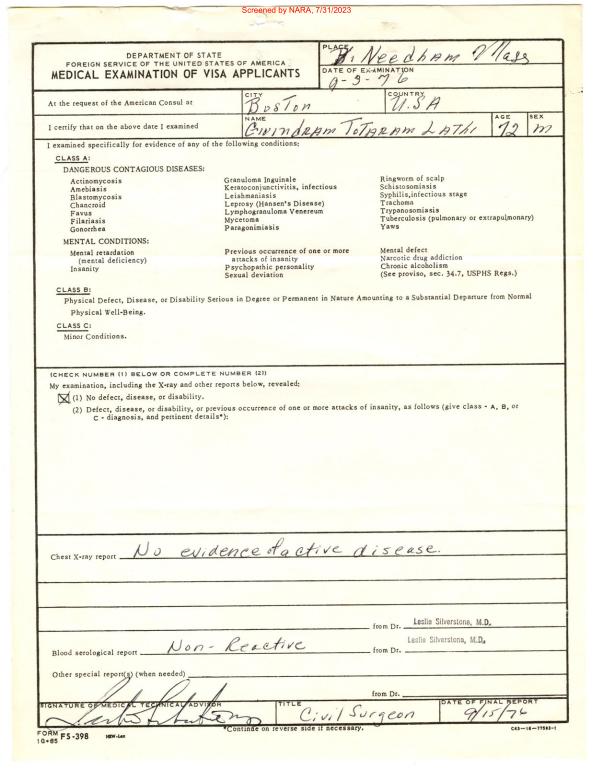 Screened by NARA, 7/31/2023
DEPARTMENT OF STATE
FOREIGN SERVICE OF THE UNITED STATES OF AMERICA
MEDICAL EXAMINATION OF VISA APPLICANTS
PLACE
Needham Mass
DATE OF EXAMINATION
9-3-76
At the request of the American Consul at
CITY
Boston
COUNTRY
U.S.A
I certify that on the above date I examined
NAME
TOTARAM LATHI
AGE
72
SEX
M
I examined specifically for evidence of any of the following conditions:
CLASS A:
DANGEROUS CONTAGIOUS DISEASES:
Actinomycosis
Amebiasis
Blastomycosis
Chancroid
Favus
Filariasis
Gonorrhea
Granuloma Inguinale
Keratoconjunctivitis, infectious
Leishmaniasis
Leprosy (Hansen's Disease)
Lymphogranuloma Venereum
Mycetoma
Paragonimiasis
Ringworm of scalp
Schistosomiasis
Syphilis, infectious stage
Trachoma
Trypanosomiasis
Tuberculosis (pulmonary or extrapulmonary)
Yaws
MENTAL CONDITIONS:
Mental retardation
(mental deficiency)
Insanity
Previous occurrence of one or more
attacks of insanity
Psychopathic personality
Sexual deviation
Mental defect
Narcotic drug addiction
Chronic alcoholism
(See proviso, sec. 34.7, USPHS Regs.)
CLASS B:
Physical Defect, Disease, or Disability Serious in Degree or Permanent in Nature Amounting to a Substantial Departure from Normal
Physical Well-Being.
CLASS C:
Minor Conditions.
(CHECK NUMBER (1) BELOW OR COMPLETE NUMBER (2))
My examination, including the X-ray and other reports below, revealed:
(1) No defect, disease, or disability.
(2) Defect, disease, or disability, or previous occurrence of one or more attacks of insanity, as follows (give class - A, B, or
C - diagnosis, and pertinent details*):
Chest X-ray report No evidence of active disease.
from Dr. Leslie Silverstone, M.D.
Blood serological report Non-Reactive from Dr. Leslie Silverstone, M.D.
Other special report(s) (when needed)
from Dr.
SIGNATURE OF MEDICAL TECHNICAL ADVISOR
TITLE
Civil Surgeon
DATE OF FINAL REPORT
9/15/76
*Continue on reverse side if necessary.
FORM FS-398
10-65